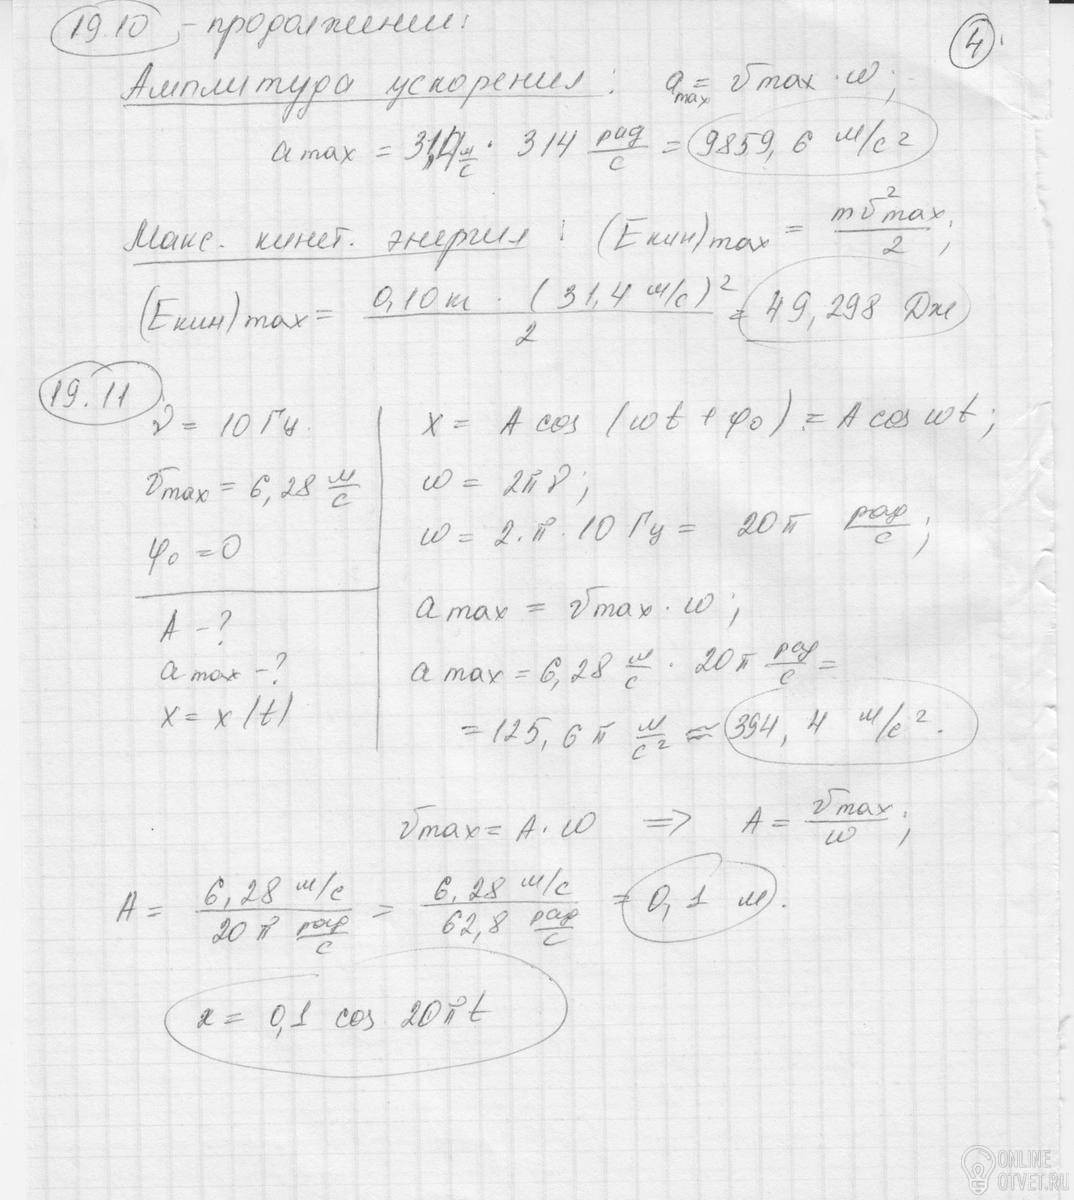 19.10 - продолжении:
4
Амплитура ускорения: a max = υmax · ω;
a max = 31,4 м/с · 314 рад/с = 9859,6 м/с²
Макс. кинет. энергия: (Eкин)max = mυ²max/2;
(Eкин)max = 0,10 кг · (31,4 м/с)²/2 = 49,298 Дж
19.11
ν = 10 Гц.
υmax = 6,28 м/с
φ₀ = 0
A - ?
a max - ?
x = x(t)
x = A cos (ωt + φ₀) = A cos ωt;
ω = 2πν;
ω = 2·π·10 Гц = 20π рад/с;
a max = υmax · ω;
a max = 6,28 м/с · 20π рад/с =
= 125,6π м/с² ≈ 394,4 м/с².
υmax = A·ω => A = υmax/ω;
A = 6,28 м/с / 20π рад/с = 6,28 м/с / 62,8 рад/с = 0,1 м.
x = 0,1 cos 20πt
ONLINE
OTVET.RU